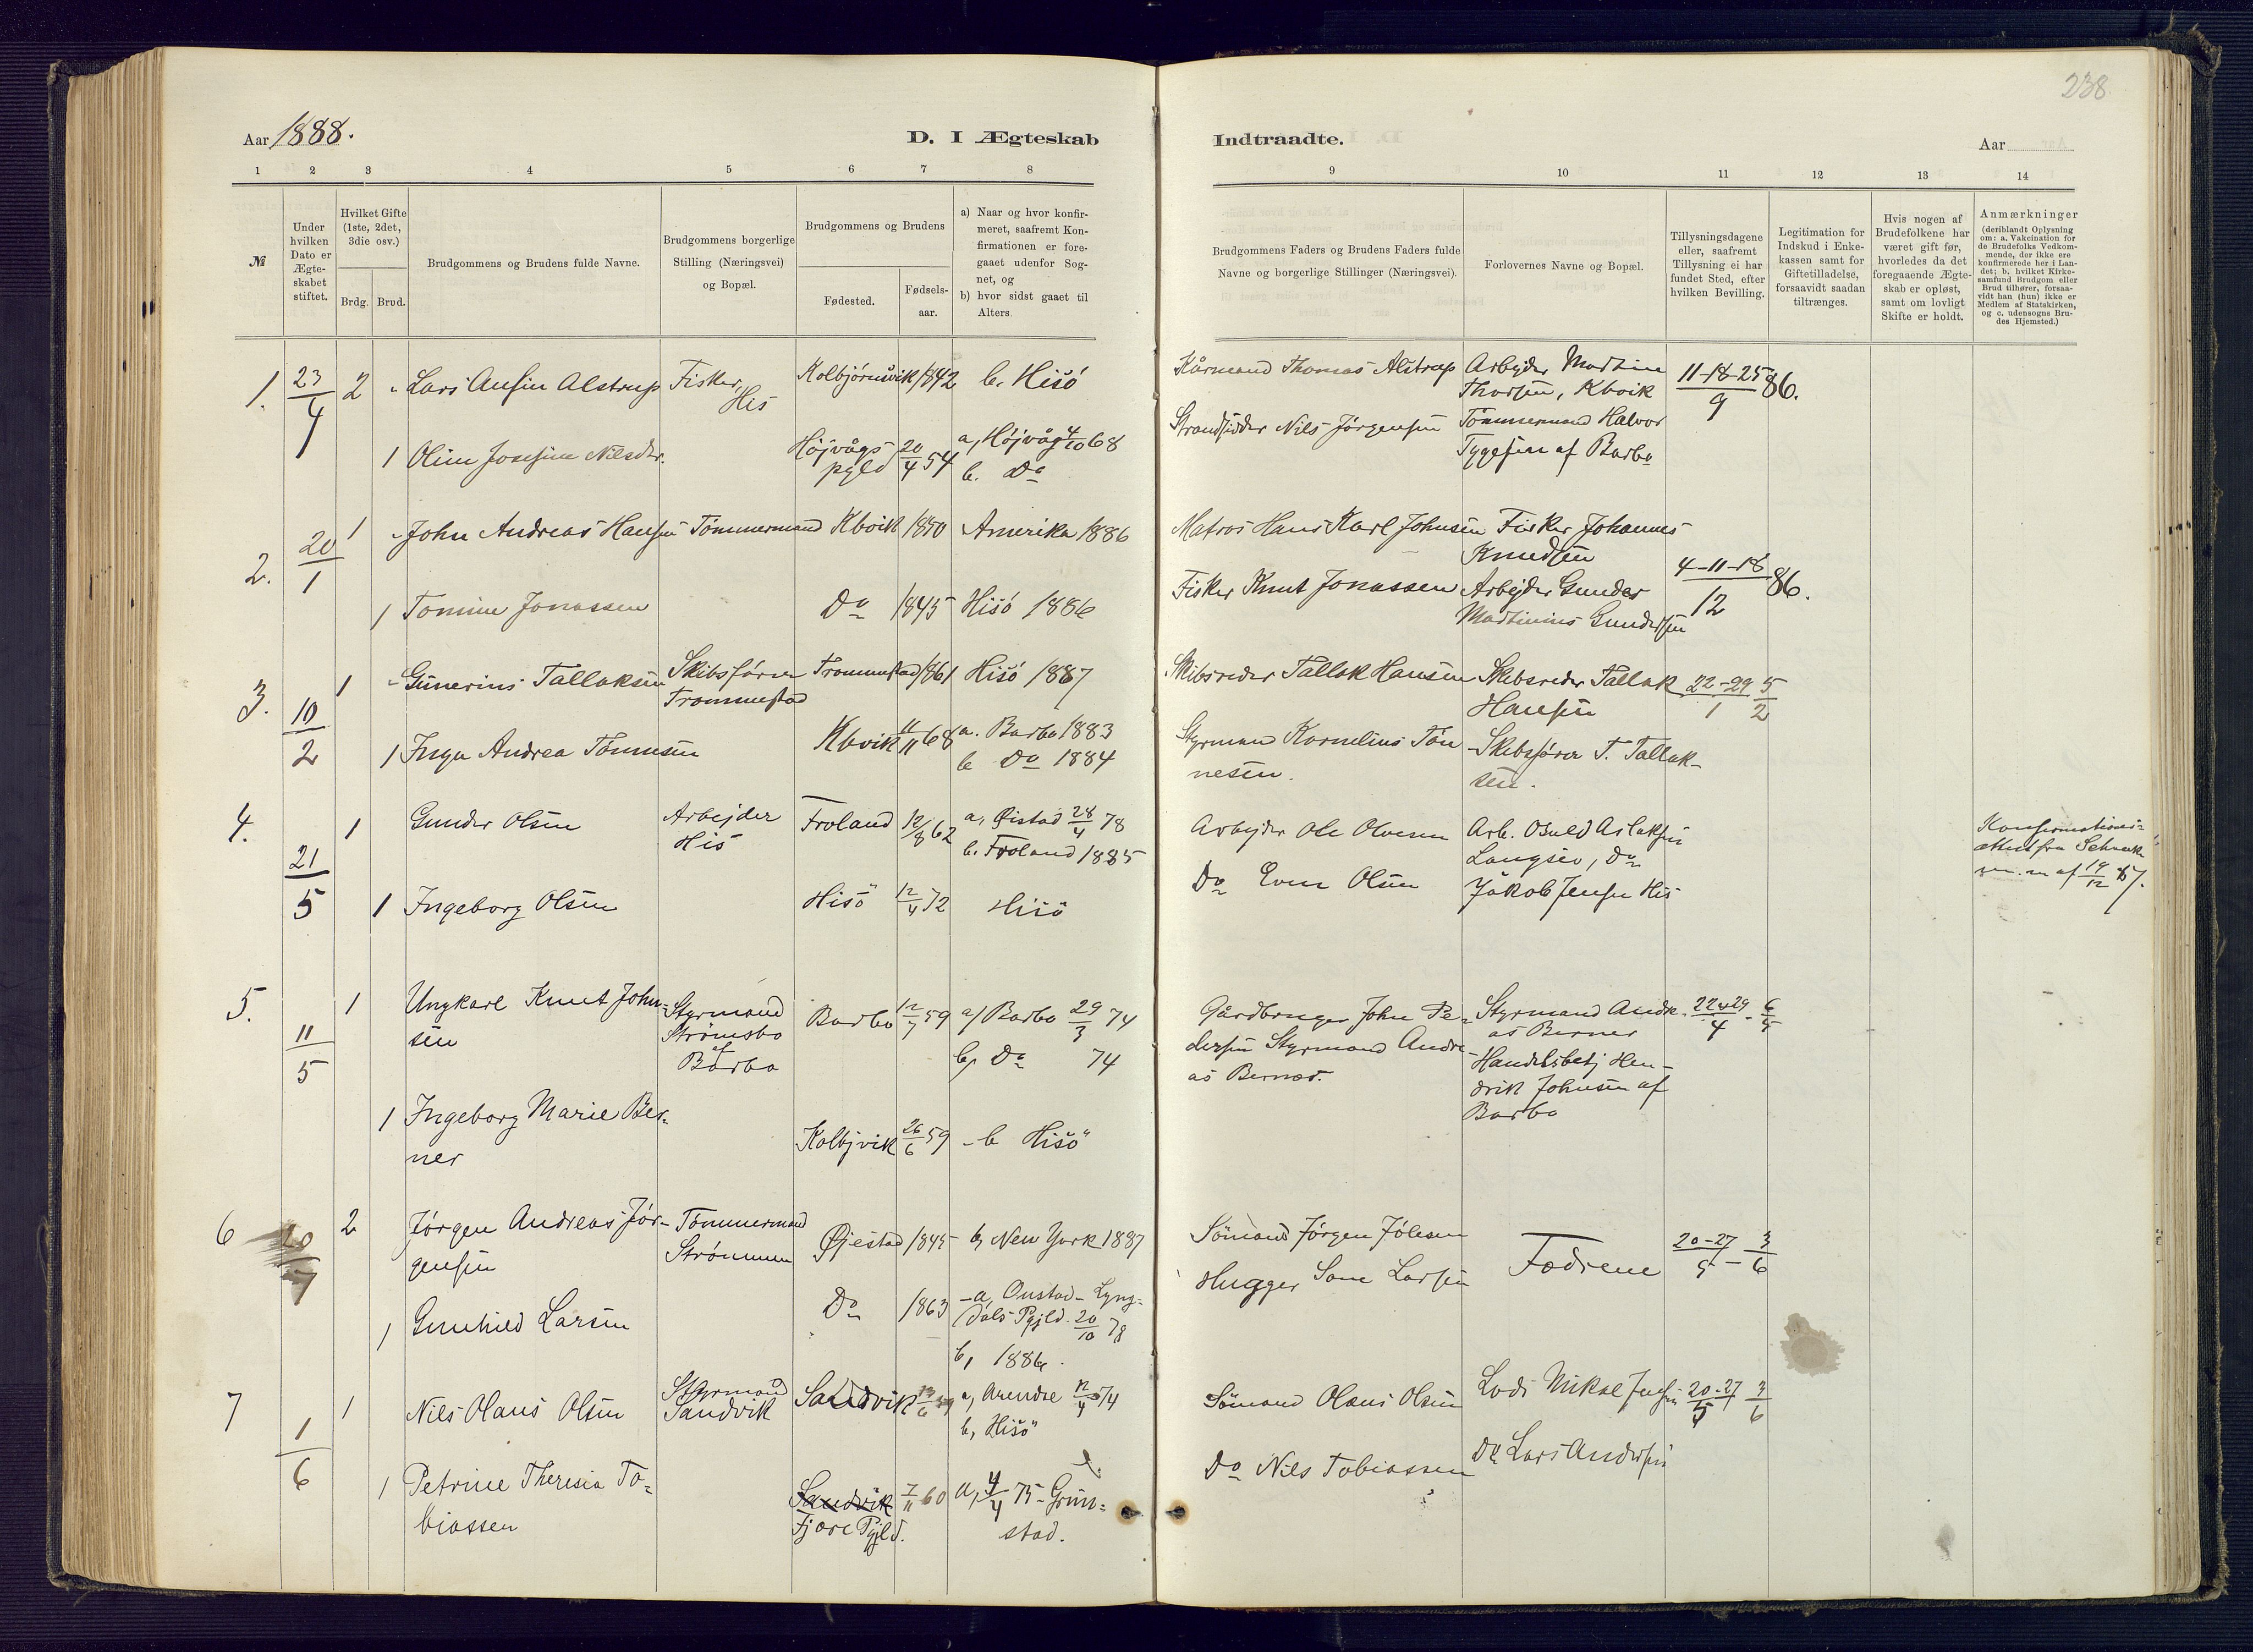 238
Aar 1888.
D. I Ægteskab
Indtraadte.
Aar
1 2 3 4 5 6 7 8
9 10 11 12 13 14
№
Under
hvilken
Dato er
Ægte-
skabet
stiftet.
Hvilket Gifte
(1ste, 2det,
3die osv.)
Brdg. Brud.
Brudgommens og Brudens fulde Navne.
Brudgommens borgerlige
Stilling (Næringsvei)
og Bopæl.
Brudgommens og Brudens
Fødested.
Fødsels-
aar.
a) Naar og hvor konfir-
meret, saafremt Kon-
firmationen er fore-
gaaet udenfor Sog-
net, og
b) hvor sidst gaaet til
Alters
Brudgommens Faders og Brudens Faders fulde
Navne og borgerlige Stillinger (Næringsvei).
Forlovernes Navne og Bopæl.
Tillysningsdagene
eller, saafremt
Tillysning ei har
fundet Sted, efter
hvilken Bevilling.
Legitimation for
Indskud i Enke-
kassen samt for
Giftetilladelse,
forsaavidt saadan
tiltrænges.
Hvis nogen af
Brudefolkene har
været gift før,
hvorledes da det
foregaaende Ægte-
skab er opløst,
samt om lovligt
Skifte er holdt.
Anmærkninger
(deriblandt Oplysning
om: a. Vakcination for
de Brudefolks Vedkom-
mende, der ikke ere
konfirmerede her i Lan-
det; b. hvilket Kirke-
samfund Brudgom eller
Brud tilhører, forsaa-
vidt han (hun) ikke er
Medlem af Statskirken,
og c. udensogns Bru-
des Hjemsted.)
1. 23/4 2 Lars Ansin Alstrup Fisker, Kolbjörnsvik 1842 b. Hisö
His
Kårmand Thomas Alstrup Arbejder Martine 11-18-25/9 86.
Thorsen, Kbvik
1 Oline Josefine Nilsdtr. Höjvågs 20/4 54 a, Höjvåg 4/10 68
pgld b. Do
Strandsidder Nils Jörgensen Tömmermand Halvor
Tygesen af Barbo
2. 20/1 1 John Andreas Hansen Tömmermand Kbvik 1850 Amerika 1886
Matros Hans Karl Johnsen Fisker Johannes
Knudsen 4-11-18/12 86.
1 Tomine Jonassen Do 1845 Hisö 1886
Fisker Knut Jonassen Arbejder Gunder
Martinius Gundersen
3. 10/2 1 Gunerius Tallaksen Skibsförer Trommestad 1861 Hisö 1887
Trommestad
Skibsreder Tallak Hansen Skibsreder Tallak 22-29/1 5/2
Hansen
1 Inga Andrea Tönnesen Kbvik 11/11 68 a. Barbo 1883
b Do 1884
Styrmand Kornelius Tön Skibsförer T. Tallak-
nesen. sen.
4. 21/5 1 Gunder Olsen Arbejder Froland 12/8 62 a, Øistad 28/4 78
His b. Froland 1885
Arbejder Ole Olvesen Arb. Osuld Aslaksen
Langsev, Do
1 Ingeborg Olsen Hisö 12/4 72 Hisö
Do Even Olsen Jåkob Jensen His
Konfirmations=
attest fra
af 19/12 87.
5. 11/5 1 Ungkarl Knut John= Styrmand Barbo 12/7 59 a) Barbo 29/3 74
sen Strömsbo b, Do 74
af
Barbo
Gårdbruger John Pe= Styrmand Andre- 22 29/4 - 6/5
dersen Styrmand Andre- as Berner
as Berner. Handelsbetj Hen-
drik Johnsen af
Barbo
1 Ingeborg Marie Ber= Kolbjvik 26/6 59 b Hisö
ner
6 20/7 2 Jörgen Andreas Jör- Tömmermand Øjestad 1845 b, New York 1887
gensen Strömmen
Sömand Jörgen Jölesen Fædrene 20-27/5 - 3/6
1 Gunhild Larsen Do 1863 a, Onstad - Lyng-
dals Pgjld. 20/10 78
b, 1886.
Hugger Larsen
7 1/6 1 Nils Olaus Olsen Styrmand Sandvik 13/6 59 a, Arendse 12/4 74
Sandvik b, Hisö
Sömand Olaus Olsen Lods Mikal Jensen 20-27/5 3/6
1 Petrine Theresia To= Sandvik 7/11 60 a, 4/4 75 - Grim=
biassen Fjære Pgjld. stad.
Do Nils Tobiassen Do Lars Andersen